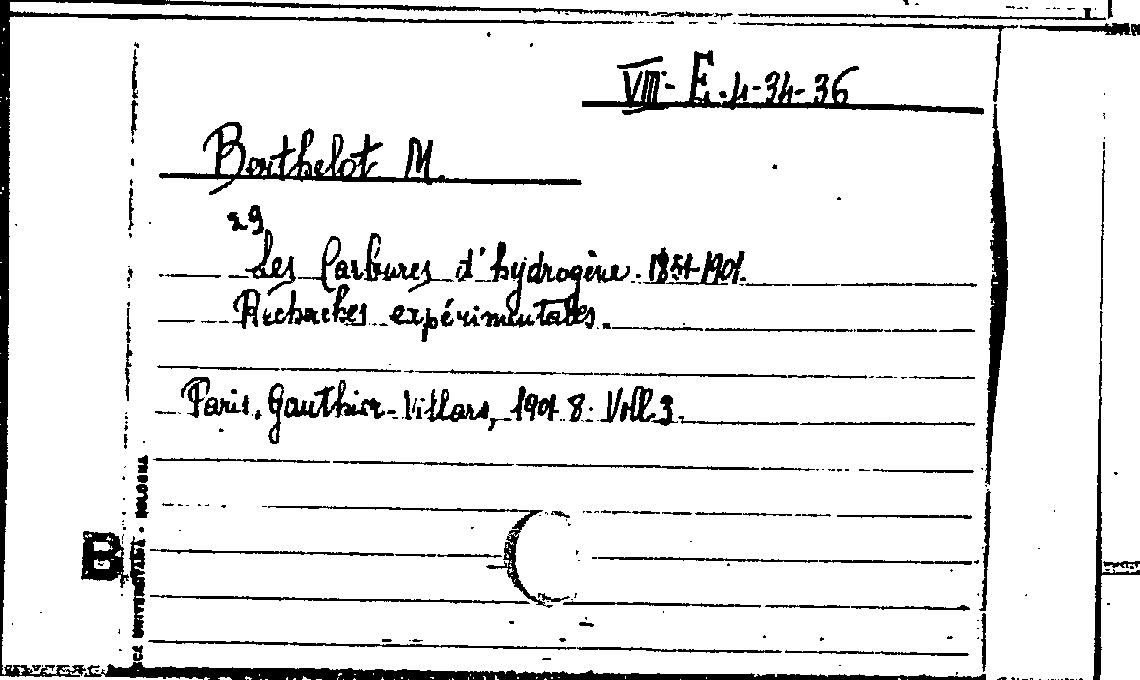 VIII - E. 4-34-36
Berthelot M.
29
Les Carbures d'hydrogène. 1851-1901.
Recherches expérimentales.
Paris, Gauthier-Villars, 1901. 8. Voll. 3.
B
UNIVERSITARIA • BOLOGNA